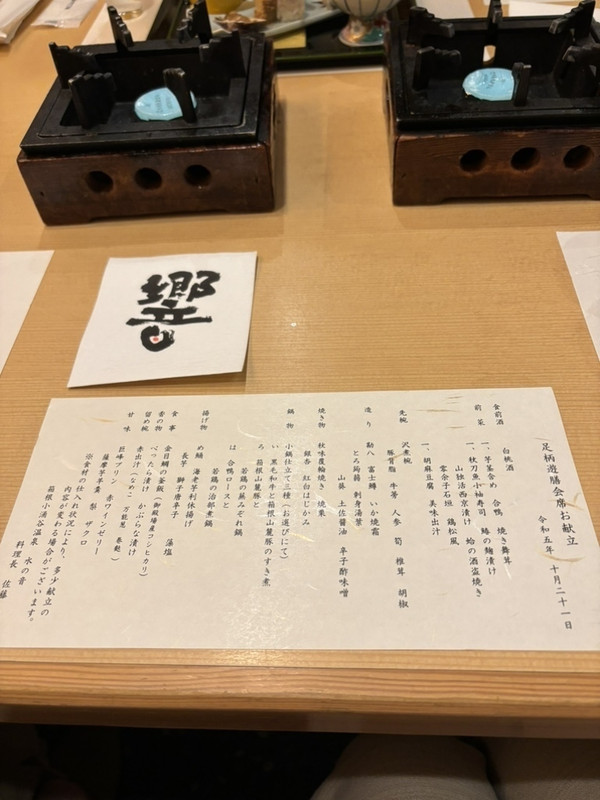 響
足柄遊膳会席お献立
令和五年 十月二十一日
食前酒 白桃酒
前菜 一、芋茎舎わ 合鴨 焼き舞茸
一、秋刀魚小袖寿司 鰆の麹漬け
山独活西京漬け 蛤の酒盗焼き
零余子石垣 鶏松風
一、胡麻豆腐 美味出汁
先椀 沢煮椀
豚背脂 牛蒡 人参 筍 椎茸 胡椒
造り 勘八 富士鱒 いか焼霜
とろ蒟蒻 刺身湯葉
山葵 土佐醤油 辛子酢味噌
焼き物 秋味廣輪焼き 焼栗
銀杏 紅白はじかみ
鍋物 小鍋仕立て三種(お選びにて)
い 黒毛和牛と箱根山麓豚のすき煮
ろ 箱根山麓豚と
若鶏の蒸みぞれ鍋
は 合鴨ロースと
若鶏の治部煮鍋
揚げ物 め鯒 海老芋利休揚げ
長芋 獅子唐辛子 藻塩
食事 金目鯛の釜飯(御殿場産コシヒカリ)
香の物 べったら漬け かぶらな漬け
留め椀 赤出汁(なめこ 万能葱 巻麩)
甘味 巨峰プリン 赤ワインゼリー
薩摩芋羊羹 梨 ザクロ
※食材の仕入れ状況により、多少献立の
内容が変わる場合がございます。
箱根小涌谷温泉 水の音
料理長 佐藤